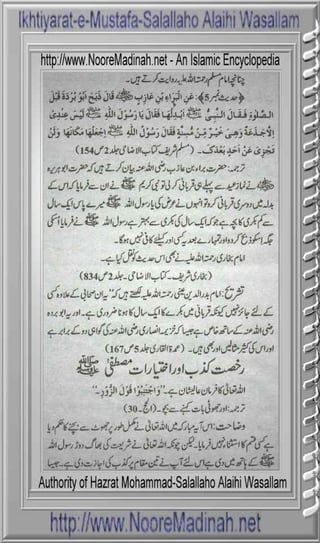 Ikhtiyarat-e-Mustafa-Salallaho Alaihi Wasallam
http://www.NooreMadinah.net - An Islamic Encyclopedia
چنانچہ امام مسلم رحمۃ اللہ علیہ روایت کرتے ہیں۔
﴿حدیث نمبر 5﴾: عَنِ الْبَرَاءِ بْنِ عَازِبٍ ﷺ قَالَ ذَبَحَ اَبُوْ بُرْدَةَ قَبْلَ
الصَّلٰوةِ فَقَالَ النَّبِيُّ ﷺ اَبْدِلْهَا فَقَالَ يَا رَسُوْلَ اللّٰهِ ﷺ لَيْسَ عِنْدِيْ
اِلَّا جَذَعَةٌ وَهِيَ خَيْرٌ مِّنْ مُسِنَّةٍ فَقَالَ رَسُوْلُ اللّٰهِ ﷺ اِجْعَلْهَا مَكَانَهَا وَلَنْ
تَجْزِيَ عَنْ اَحَدٍ بَعْدَكَ۔ (مسلم شریف۔ کتاب الاضاحی جلد 2 ص 154)
ترجمہ: حضرت براء بن عازب رضی اللہ عنہ بیان کرتے ہیں کہ حضرت ابو بردہ
نے نماز عید سے پہلے ہی قربانی کر لی تو نبی کریم ﷺ نے ان سے فرمایا کہ اس کے
بدلہ میں دوسری قربانی کرو تو انہوں نے عرض کی یا رسول اللہ ﷺ میرے پاس ایک سال
سے کم بکری کا بچہ ہے جو کہ ایک سال کی بکری سے بہتر ہے رسول اللہ ﷺ نے فرمایا اسکی
جگہ اسکو ذبح کر دو اور تمہارے بعد یہ کسی اور کیلئے کافی نہیں ہوگا۔
امام بخاری رحمۃ اللہ علیہ نے بھی اس حدیث کو نقل کیا ہے۔
(بخاری شریف۔ کتاب الاضاحی۔ جلد 2 ص 834)
تشریح: امام بدر الدین عینی رحمۃ اللہ علیہ لکھتے ہیں کہ "یہ ان صحابی کے علاوہ کسی
کے لئے جائز نہیں کیونکہ قربانی میں بکرے کا ایک سال کا ہونا ضروری ہے۔ اور یہ ابو بردہ
رضی اللہ عنہ کے ساتھ خاص ہے جیسا کہ خزیمہ انصاری رضی اللہ عنہ کی گواہی دو کے برابر ہے
اور اس کی کثیر مثالیں اور بھی ہیں۔ (عمدۃ القاری جلد 5 ص 167)
رخصت کذب اور اختیارات مصطفیٰ ﷺ
اللہ تعالیٰ کا فرمان عالیشان ہے۔ "وَاجْتَنِبُوْا قَوْلَ الزُّوْرِ۔"
ترجمہ: اور جھوٹی بات کہنے سے بچو۔ (الحج۔ 30)
وضاحت: اس آیہ مبارکہ میں اللہ تعالیٰ نے مکمل طور پر جھوٹ سے بچنے کا حکم دیا
ہے کسی قسم کا استثناء نہیں فرمایا۔ لیکن چونکہ اللہ تعالیٰ نے شریعت کی بھاگ دوڑ رسول اللہ
ﷺ کے ہاتھ میں دی ہے اس لئے آپ نے تین مقام پر کذب کی اجازت دی ہے۔ جیسا
Authority of Hazrat Mohammad-Salallaho Alaihi Wasallam
http://www.NooreMadinah.net